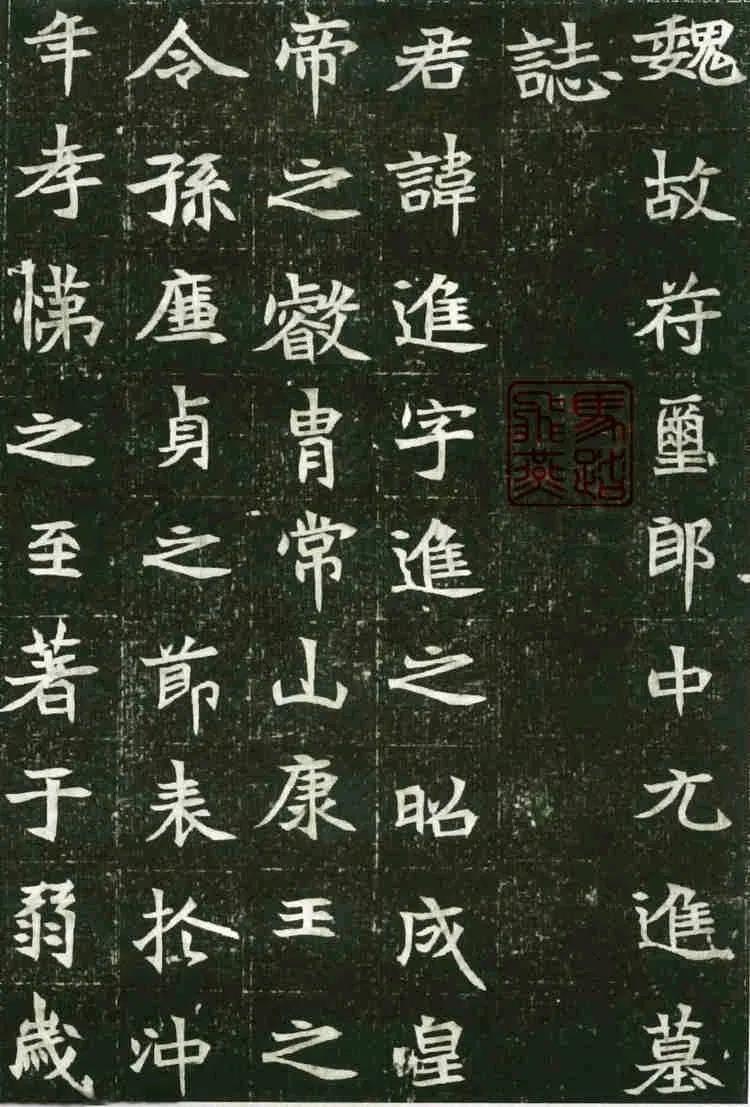 魏故苻璽郎中元進墓
誌
君諱進字進之昭成皇
帝之叡胄常山康王之
令孫廉貞之節表於沖
年孝悌之至著于弱歲
馬踏
飛燕